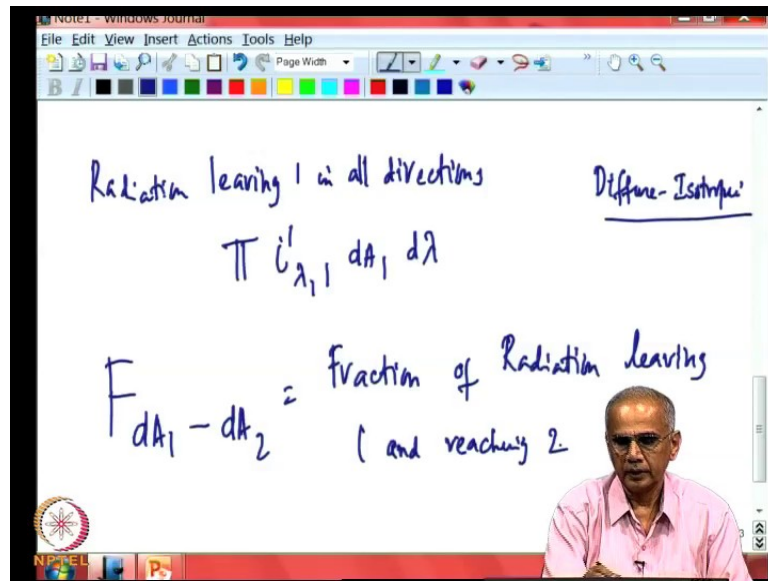 Note1 - Windows Journal
File Edit View Insert Actions Tools Help
Page Width
B I
Radiation leaving 1 in all directions
Diffuse-Isotropic
π i'λ,1 dA1 dλ
F dA1 - dA2 = Fraction of Radiation leaving
1 and reaching 2.
NPTEL